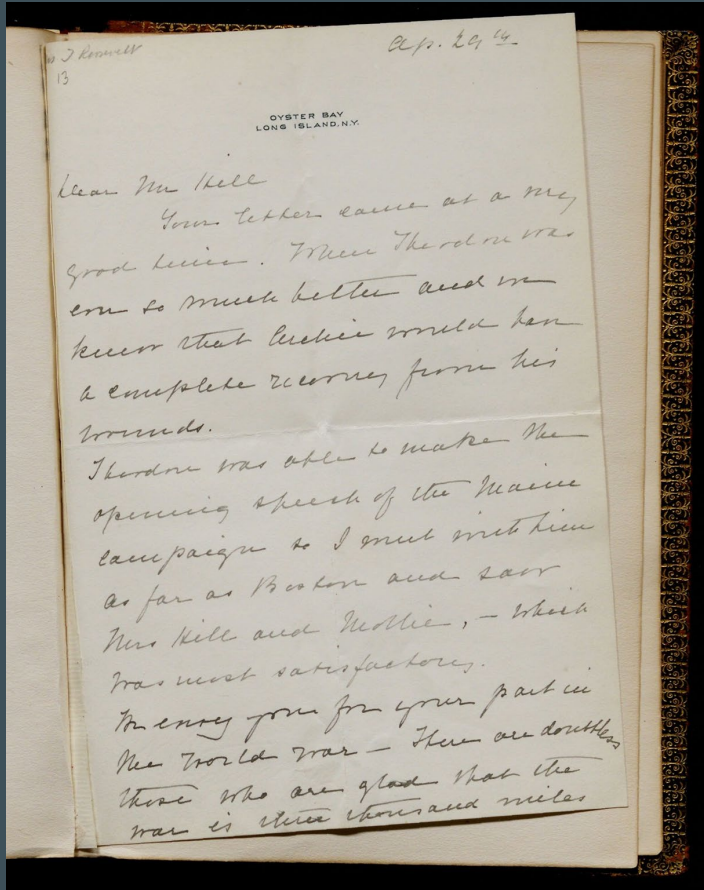 T Roosevelt
13
Ap. 29th
OYSTER BAY
LONG ISLAND, N.Y.
Dear Mr Hill
Your letter came at a very
good time. When Theodore was
ever so much better and we
knew that Archie would have
a complete recovery from his
wounds.
Theodore was able to make the
opening speech of the Maine
campaign so I went with him
as far as Boston and saw
Mrs Hill and Mollie, – which
was most satisfactory.
We envy you for your part in
the world war – There are doubtless
those who are glad that the
war is three thousand miles